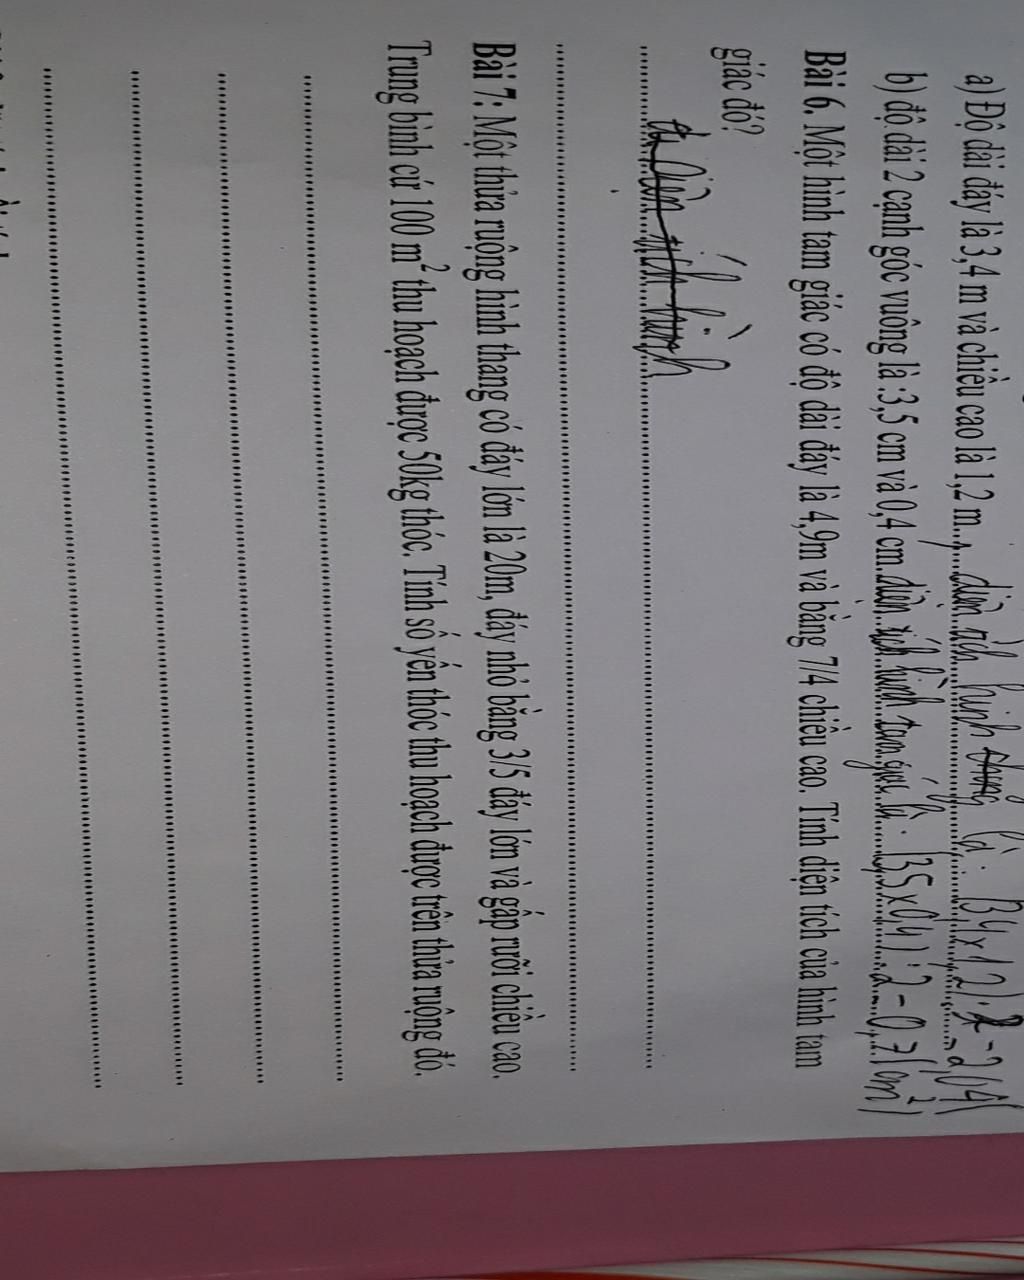 a) Độ dài đáy là 3,4 m và chiều cao là 1,2 m. diện tích hình là: (3,4 x 1,2) : 2 = 2,04(
b) độ dài 2 cạnh góc vuông là :3,5 cm và 0,4 cm diện tích hình tam giác là: (3,5 x 0,4) : 2 = 0,7 (cm²)
Bài 6. Một hình tam giác có độ dài đáy là 4,9m và bằng 7/4 chiều cao. Tính diện tích của hình tam
giác đó?
diện tích hình
Bài 7: Một thửa ruộng hình thang có đáy lớn là 20m, đáy nhỏ bằng 3/5 đáy lớn và gấp rưỡi chiều cao.
Trung bình cứ 100 m² thu hoạch được 50kg thóc. Tính số yến thóc thu hoạch được trên thửa ruộng đó.